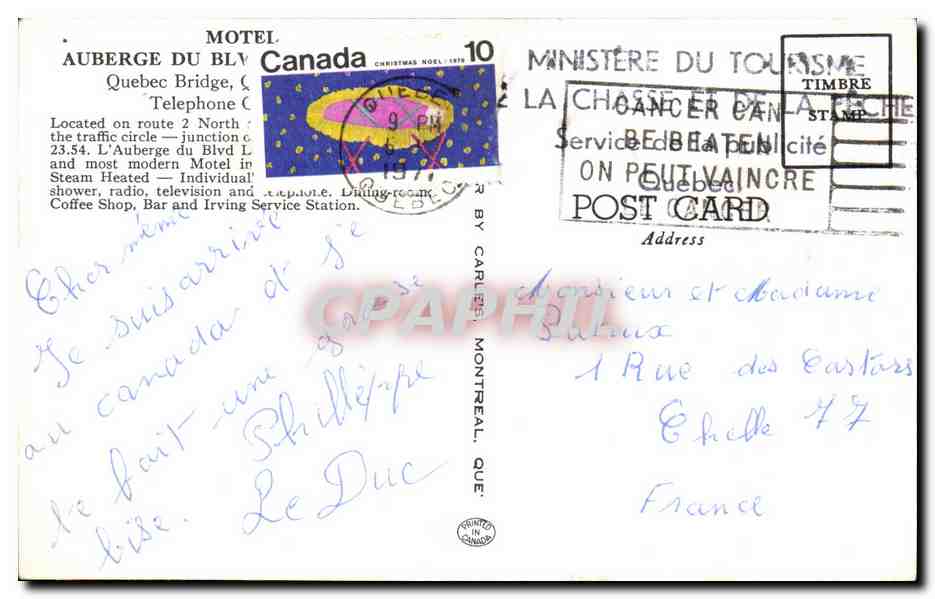 MOTEL
AUBERGE DU BLV
Quebec Bridge, Q
Telephone
Located on route 2 North
the traffic circle — junction
23.54. L'Auberge du Blvd L
and most modern Motel in
Steam Heated — Individual
shower, radio, television and telephone. Dining-room,
Coffee Shop, Bar and Irving Service Station.
Canada
CHRISTMAS NOËL 1970
10
QUEBEC
9 PM
197
QUEBEC
MINISTÈRE DU TOURISME
LA CHASSE ET DE LA PÊCHE
Service de la publicité
Québec
CANCER CAN
BE BEATEN
ON PEUT VAINCRE
LE CANCER
TIMBRE
STAMP
POST CARD
Address
Cher mémé
Je suis arrivé
au canada et je
te fait une grosse
bise.
Philleppe
Le Duc
R BY CARLE'S, MONTREAL, QUE'
PRINTED
IN
CANADA
Monsieur et Madame
1 Rue des Castors
Chelle 77
France
CPAPHIL